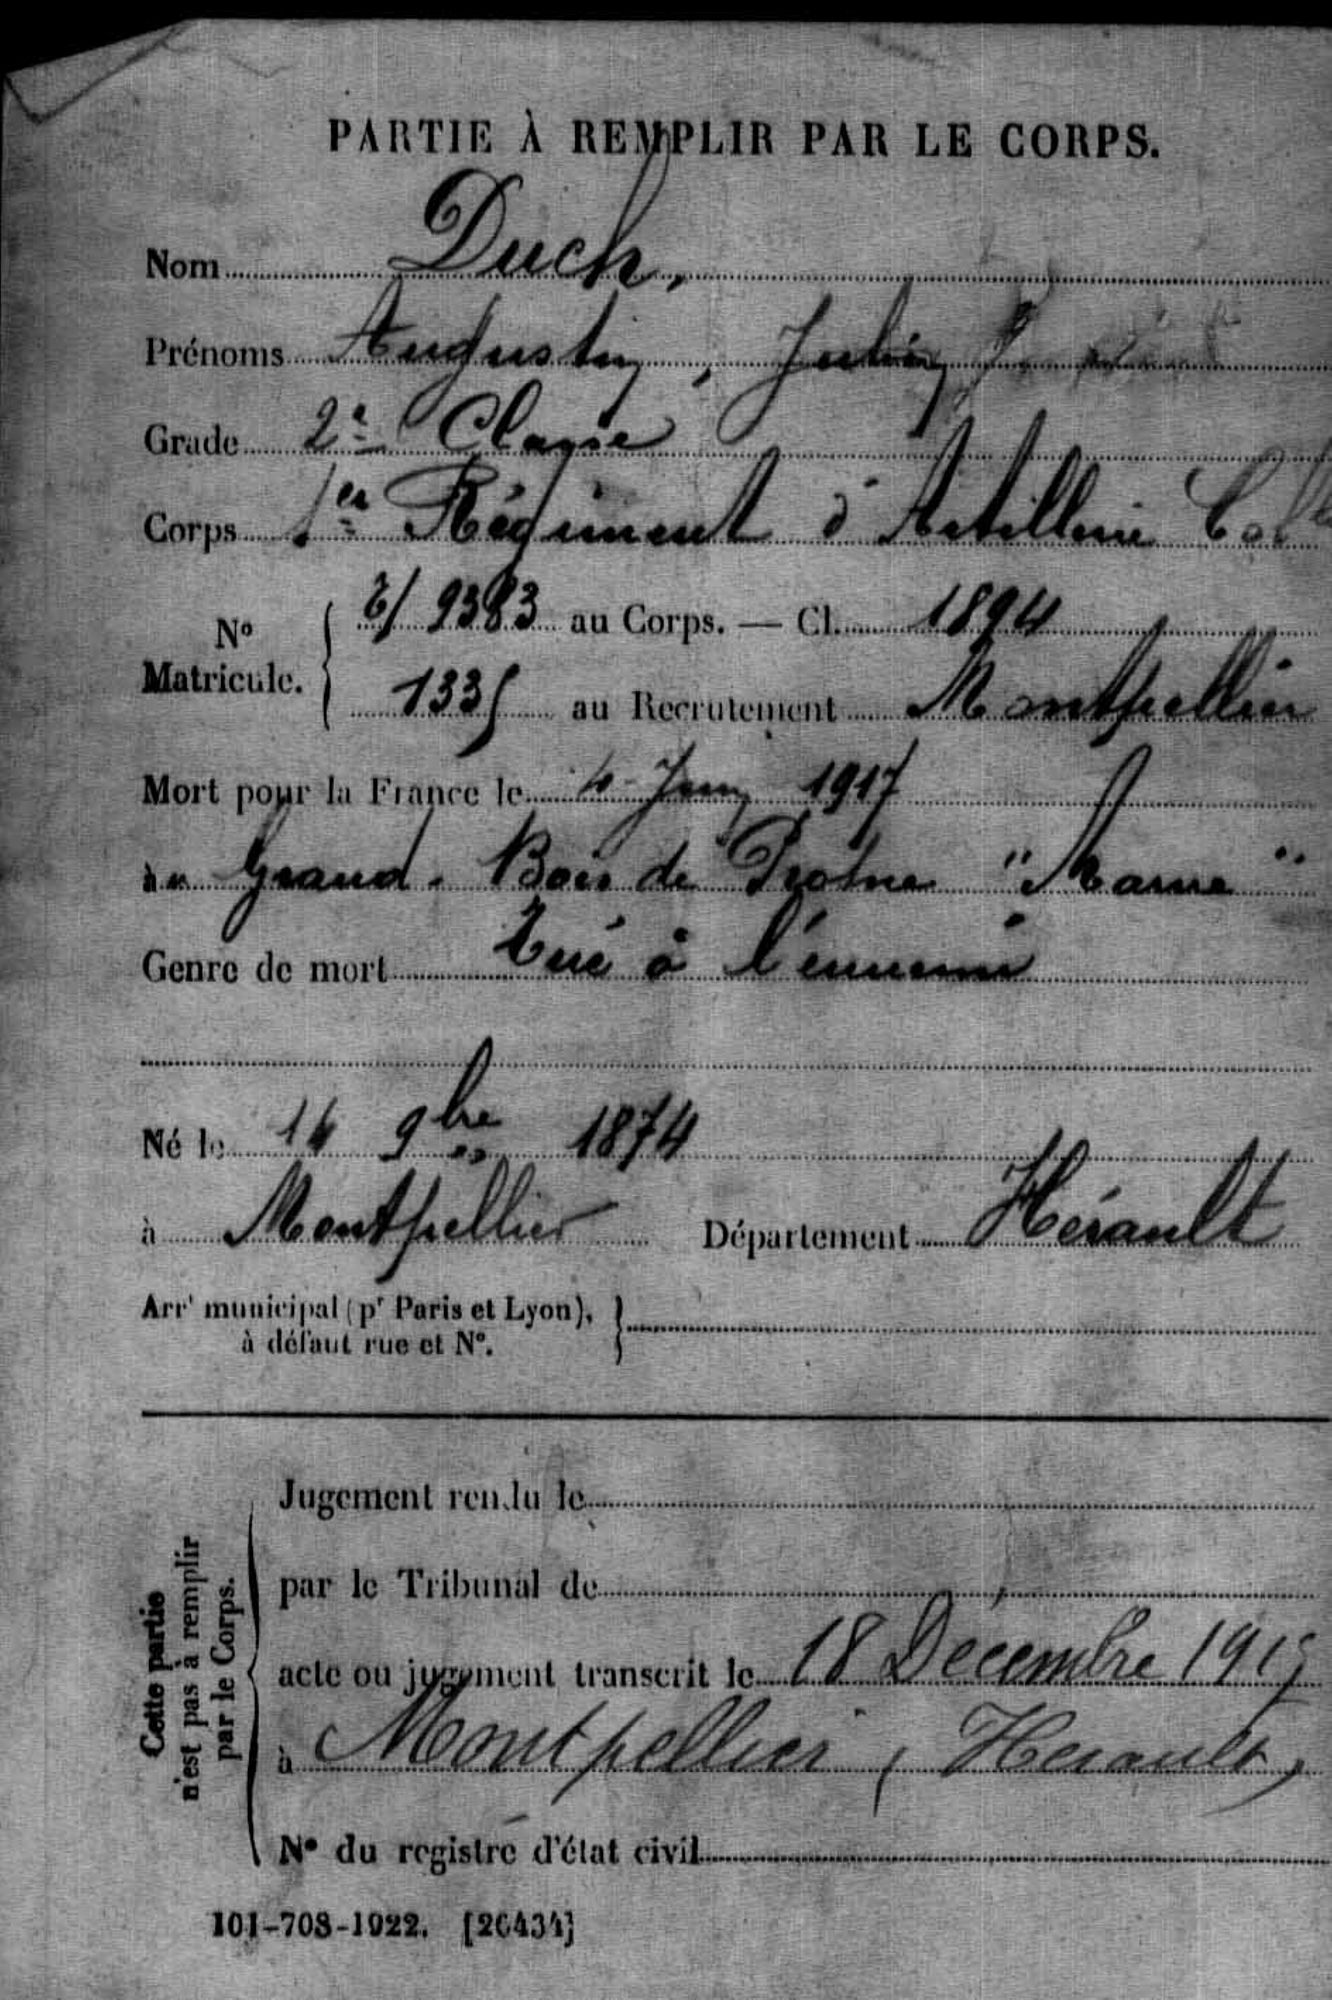 PARTIE À REMPLIR PAR LE CORPS.
Nom Duch,
Prénoms Augustin, Julien
Grade 2e Classe
Corps 1er Régiment d'Artillerie Colle
No Matricule. { 9383 au Corps. — Cl. 1894
1335 au Recrutement Montpellier
Mort pour la France le 4 Juin 1917
au Grand Bois de Prosne "Marne"
Genre de mort Tué à l'ennemi
Né le 14 9bre 1874
à Montpellier Département Hérault
Arrt municipal (pr Paris et Lyon),
à défaut rue et N°.
Cette partie
n'est pas à remplir
par le Corps.
Jugement rendu le
par le Tribunal de
acte ou jugement transcrit le 18 Décembre
à Montpellier (Hérault)
N° du registre d'état civil
101-708-1922. [26434]